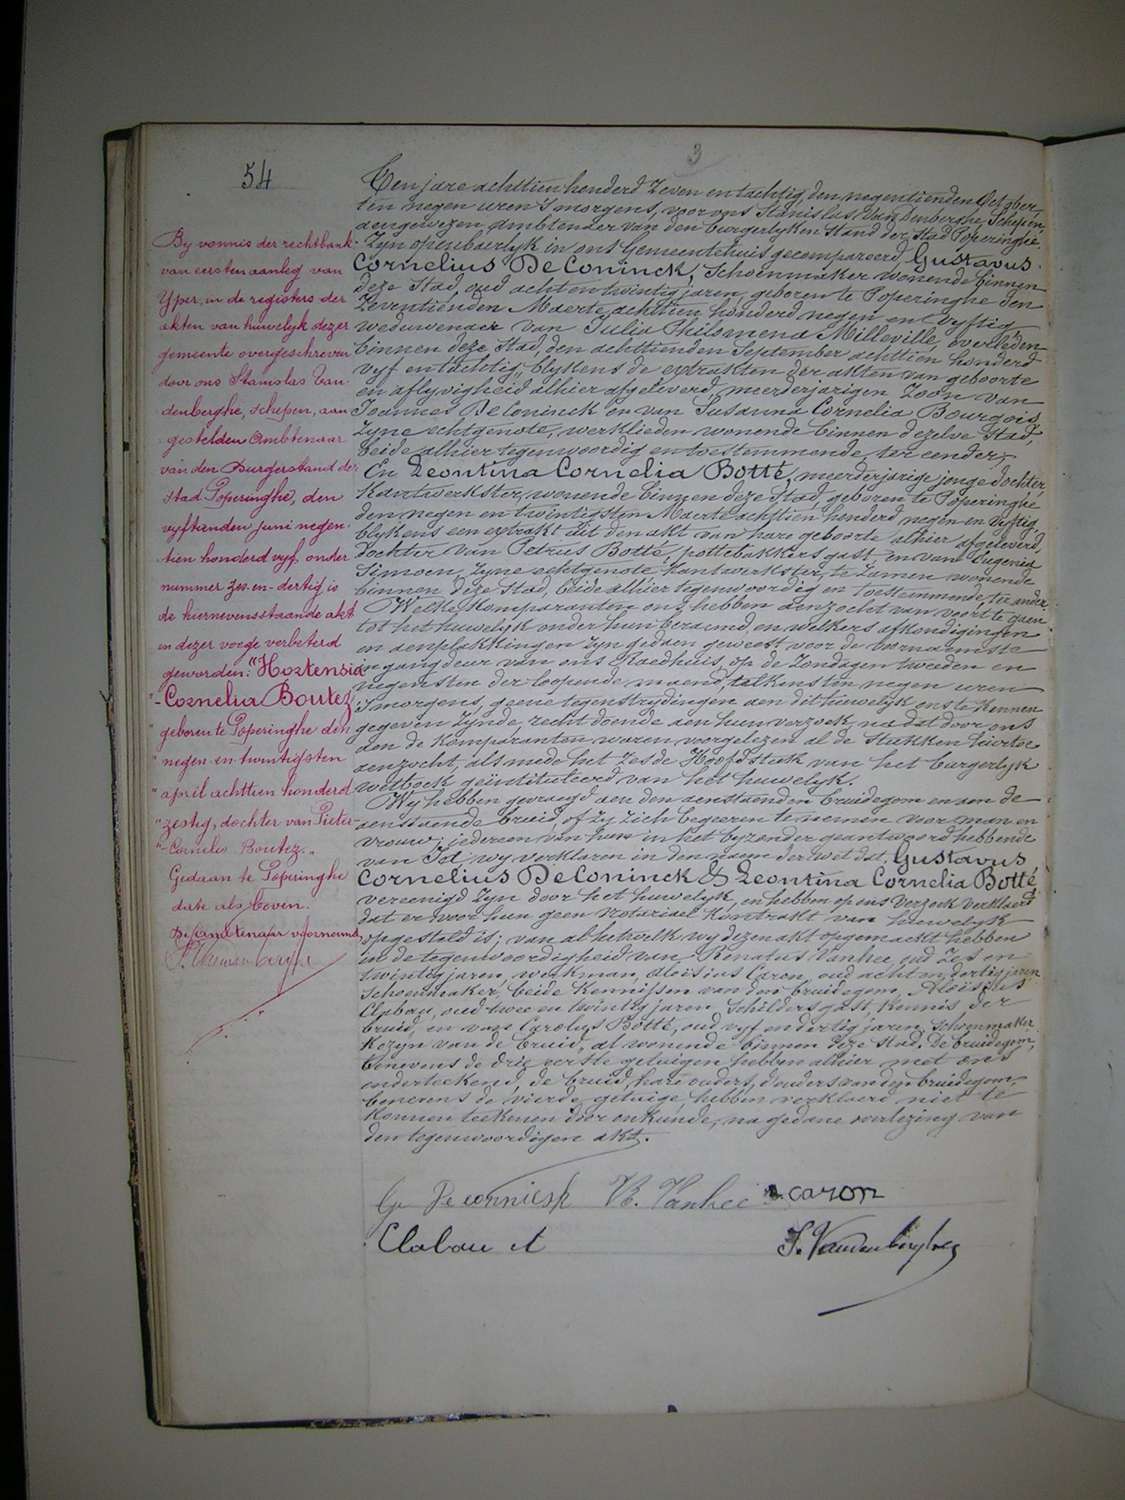 3
54
Ten jare achttien honderd Zeven en tachtig, den negentienden October
ten negen uren 's morgens, voor ons Stanislas Vandenberghe, Schepen,
aengewezen Ambtenaer van den burgerlyken Stand der Stad Poperinghe
Zyn openbaerlyk in ons Gemeentehuis gecompareerd, Gustavus
Cornelius DeConinck, Schoenmaker wonende binnen
deze Stad, oud acht en twintig jaren, geboren te Poperinghe den
Zeventienden Maerte achttien honderd negen en vyftig,
weduwenaer van Julia Philomena Milleville, overleden
binnen deze Stad, den achttienden September achttien honderd
vyf en tachtig, blykens de extrakten der akten van geboorte
en aflyvigheid alhier afgeleverd, meerderjarigen Zoon van
Joannes DeConinck en van Susanna Cornelia Bourgois,
Zyne echtgenote, werklieden wonende binnen dezelve Stad,
beide alhier tegenwoordig en toestemmende, ter eender;
En Leontina Cornelia Botté, meerderjarige jonge dochter,
Kantwerkster, wonende binnen deze Stad, geboren te Poperinghe
den negen en twintigsten Maerte achttien honderd negen en vyftig,
blykens een extrakt uit den akt van hare geboorte alhier afgeleverd,
Dochter van Petrus Botté, pottebakkers gast en van Eugenia
Simoen, Zyne echtgenote Kantwerkster, te Zamen wonende
binnen deze Stad, beide alhier tegenwoordig en toestemmende, ter ander
Welke Komparanten ons hebben aenzocht van voort te gaen
tot het huwelyk onder hun beraemd, en welkers afkondigingen
en aenplakkingen Zyn gedaen geweest voor de voornaemste
ingangdeur van ons Raedhuis, op de Zondagen tweeden en
negensten der loopende maend, telkens ten negen uren
's morgens, geene tegenstrydingen aen dit huwelyk ons te Kennen
gegeven Zynde, recht doende aen hun verzoek, na dat door ons
aen de Komparanten waren voorgelezen al de Stukken hiertoe
aenzocht, als mede het Zesde Hoofdstuk van het burgerlyk
wetboek geïntituleerd van het huwelyk.
Wy hebben gevraegd aen den aenstaenden bruidegom en aen de
aenstaende bruid of zy zich begeeren te nemen voor man en
vrouw; jedereen van hun in het byzonder geantwoord hebbende
van Ja, wy verklaren in den naem der wet dat, Gustavus
Cornelius DeConinck & Leontina Cornelia Botté
vereenigd Zyn door het huwelyk, en hebben op ons verzoek verklaerd
dat er voor hun geen notariael Kontrakt van huwelyk
opgesteld is; van al hetwelk wy dezen akt opgemaekt hebben
in de tegenwoordigheid van Renatus Vanhee, oud Zes en
twintig jaren, werkman, Aloisius Caron, oud acht en dertig jaren
Schoenmaker, beide Kennissen van den bruidegom, Aloisius
Clabau, oud twee en twintig jaren Schilders gast, Kennis der
bruid, en van Carolus Botté, oud vyf en dertig jaren, Schoenmaker
Kozyn van de bruid, al wonende binnen deze Stad. De bruidegom,
benevens de drie eerste getuigen hebben alhier met ons
onderteekend, de bruid, hare ouders, d'ouders van den bruidegom,
benevens de vierde getuige hebben verklaerd niet te
Konnen teekenen door onkunde, na gedane voorlezing van
den tegenwoordigen akt.
G. Deconninck R. Vanhee a. caron
Clabau A S. Vandenberghe
By vonnis der rechtbank
van eersten aanleg van
Yper, in de registers der
akten van huwelyk dezer
gemeente overgeschreven
door ons Stanislas Van-
denberghe, schepen, aan
gestelden Ambtenaar
van den Burgerstand der
stad Poperinghe, den
vyftienden juni negen-
tien honderd vyf, onder
nummer zes-en-dertig is
de hiernevensstaande akt
in dezer voege verbeterd
geworden: "Hortensia
"-Cornelia Boutez,
" geboren te Poperinghe den
" negen-en-twintigsten
" april achttien honderd
" zestig, dochter van Pieter-
"-Cornelis Boutez."
Gedaan te Poperinghe
date als boven.
De Ambtenaar voornoemd,
S. Vandenberghe